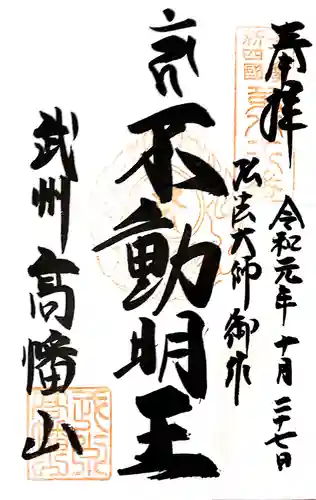 奉拝
令和元年十月二十七日
弘法大師御作
不動明王
武州高幡山